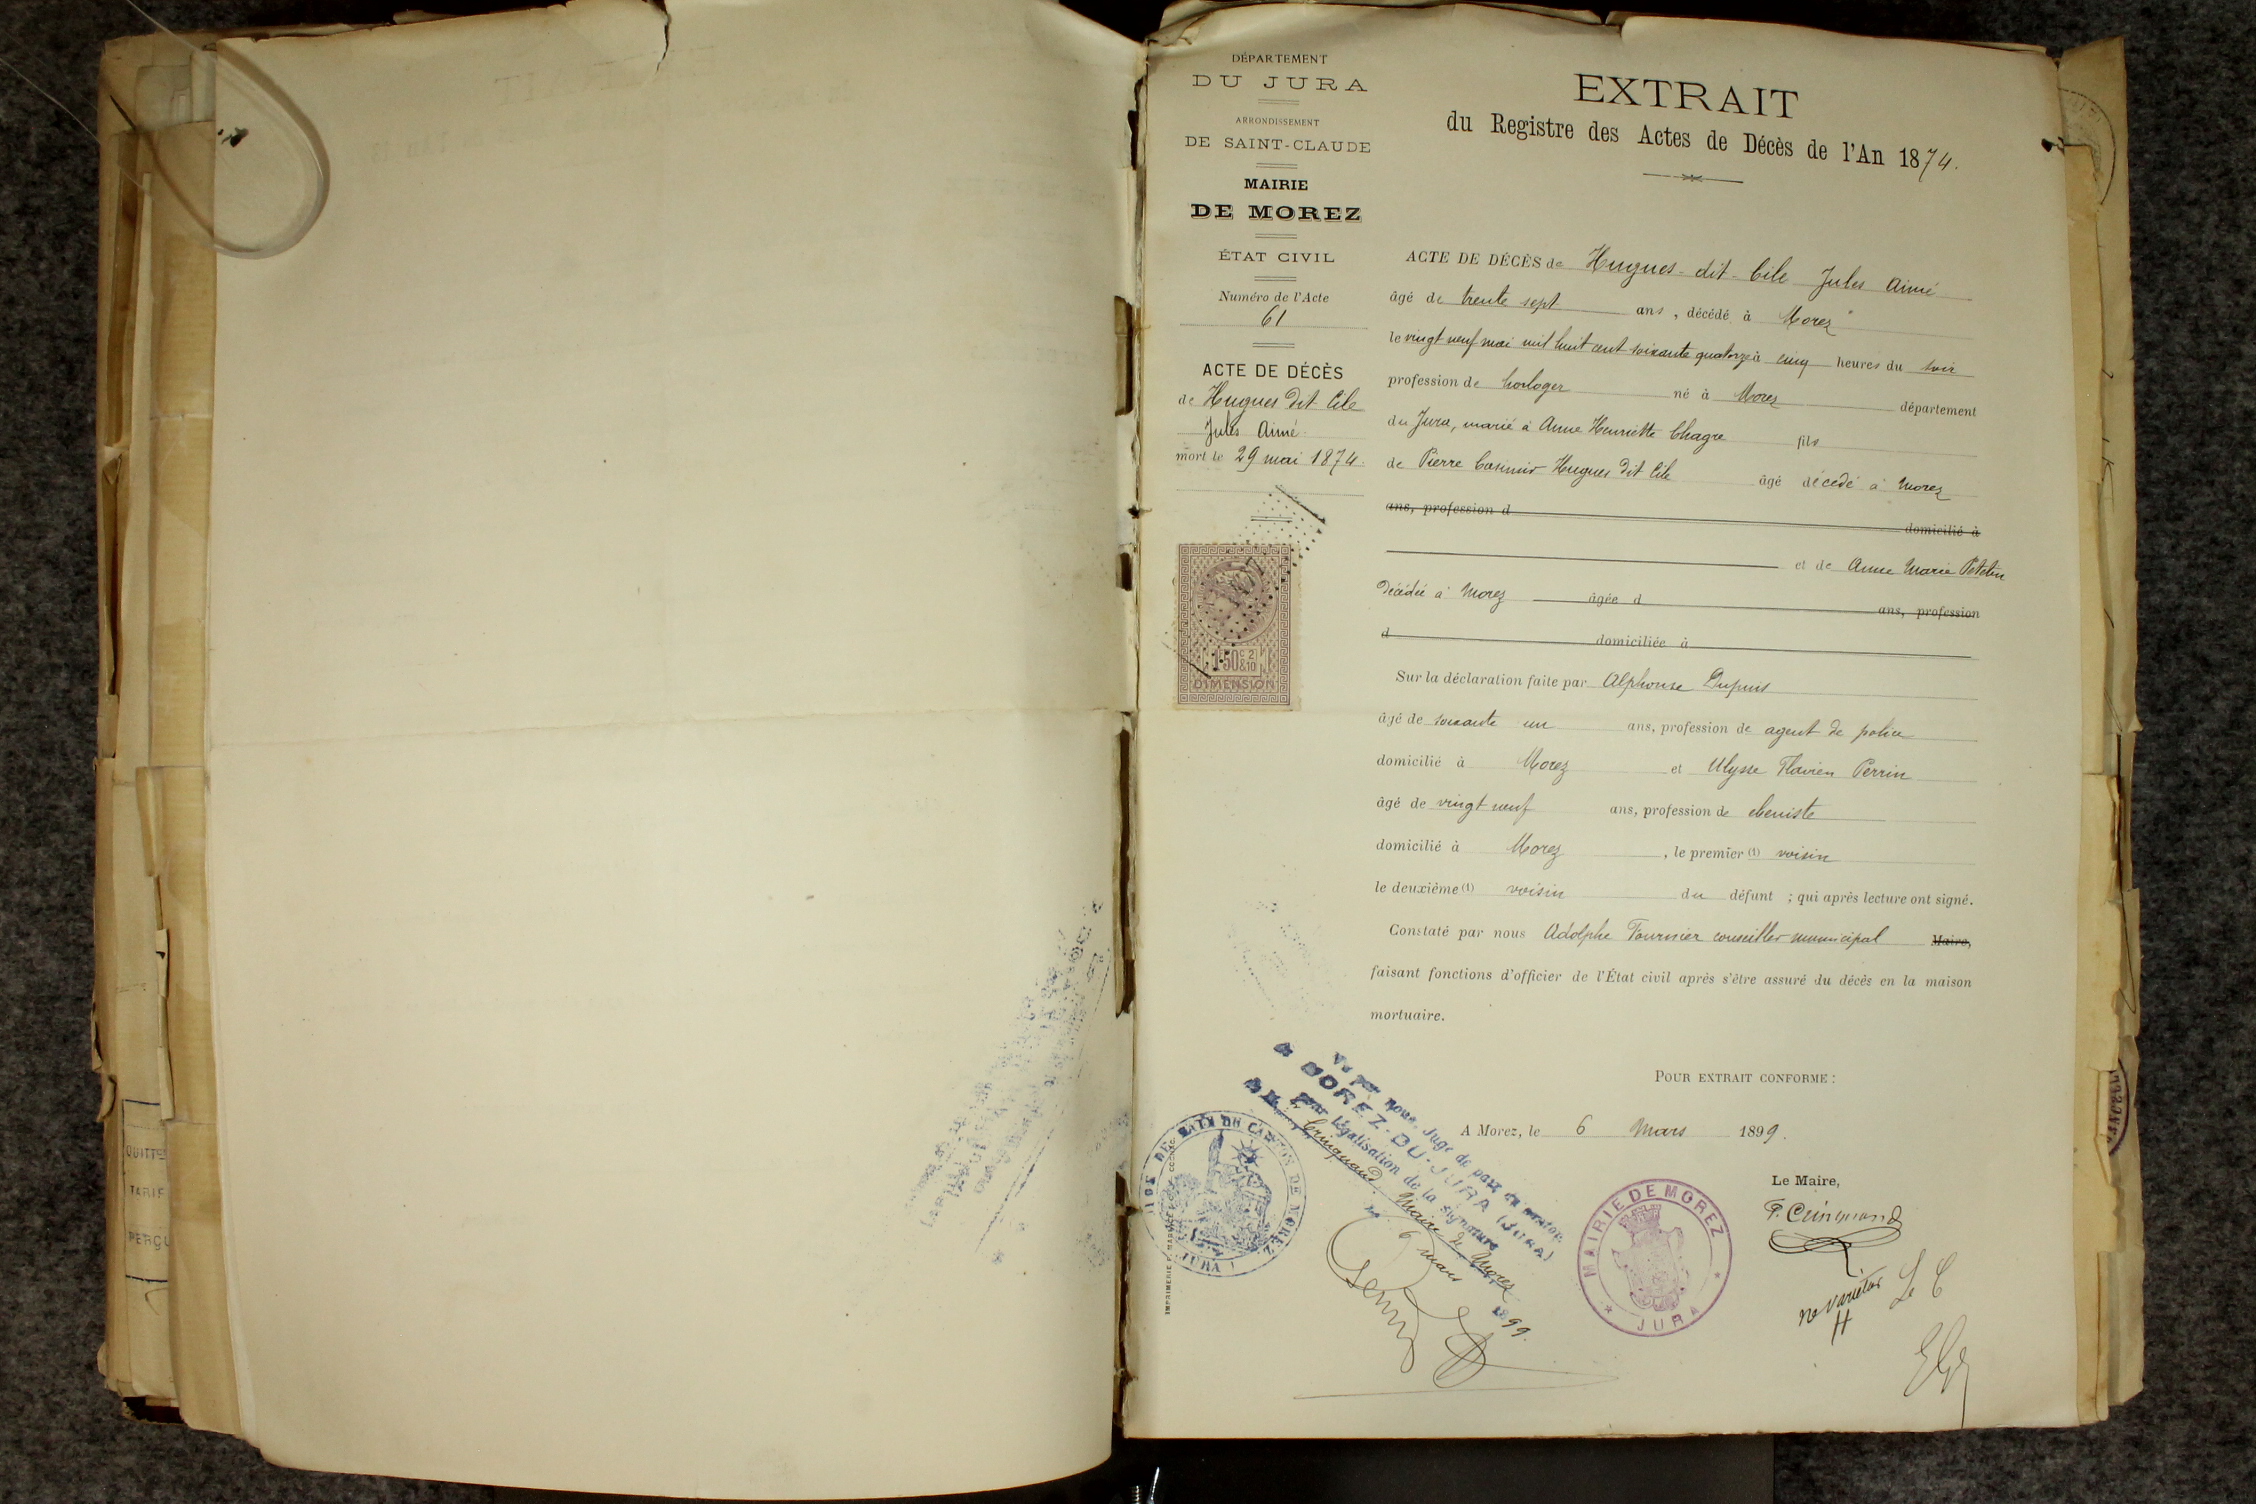 DÉPARTEMENT
DU JURA
ARRONDISSEMENT
DE SAINT-CLAUDE
MAIRIE
DE MOREZ
ÉTAT CIVIL
Numéro de l'Acte
61
ACTE DE DÉCÈS
de Hugues dit Cile
Jules Aimé
mort le 29 mai 1874.
1.50 c 2 & 10
DIMENSION
EXTRAIT
du Registre des Actes de Décès de l'An 1874.
ACTE DE DÉCÈS de Hugues-dit-Cile Jules Aimé
âgé de trente sept ans, décédé à Morez
le vingt neuf mai mil huit cent soixante quatorze à cinq heures du soir
profession de horloger né à Morez département
du Jura, marié à Anne Henriette Chagre fils
de Pierre Casimir Hugues dit Cile âgé décédé à Morez
ans, profession d domicilié à
et de Anne Marie Petetin
Décédée à Morez âgée d ans, profession
d domiciliée à
Sur la déclaration faite par Alphonse Dupuis
âgé de soixante un ans, profession de agent de police
domicilié à Morez et Ulysse Flavien Perrin
âgé de vingt neuf ans, profession de ebeniste
domicilié à Morez, le premier (1) voisin
le deuxième (1) voisin du défunt ; qui après lecture ont signé.
Constaté par nous Adolphe Fournier conseiller municipal Maire,
faisant fonctions d'officier de l'État civil après s'être assuré du décès en la maison
mortuaire.
POUR EXTRAIT CONFORME :
A Morez, le 6 Mars 1899.
Le Maire,
P. Cringuand
Ne Varietur
MAIRIE DE MOREZ
JURA
Vu par nous, Juge de paix du canton
de MOREZ-DU-JURA (JURA)
pour légalisation de la signature
de M. Cringuand, Maire de Morez
6 mars 1899.
DE PAIX DU CANTON DE MOREZ
JURA
QUITTE
TARIF
PERÇU